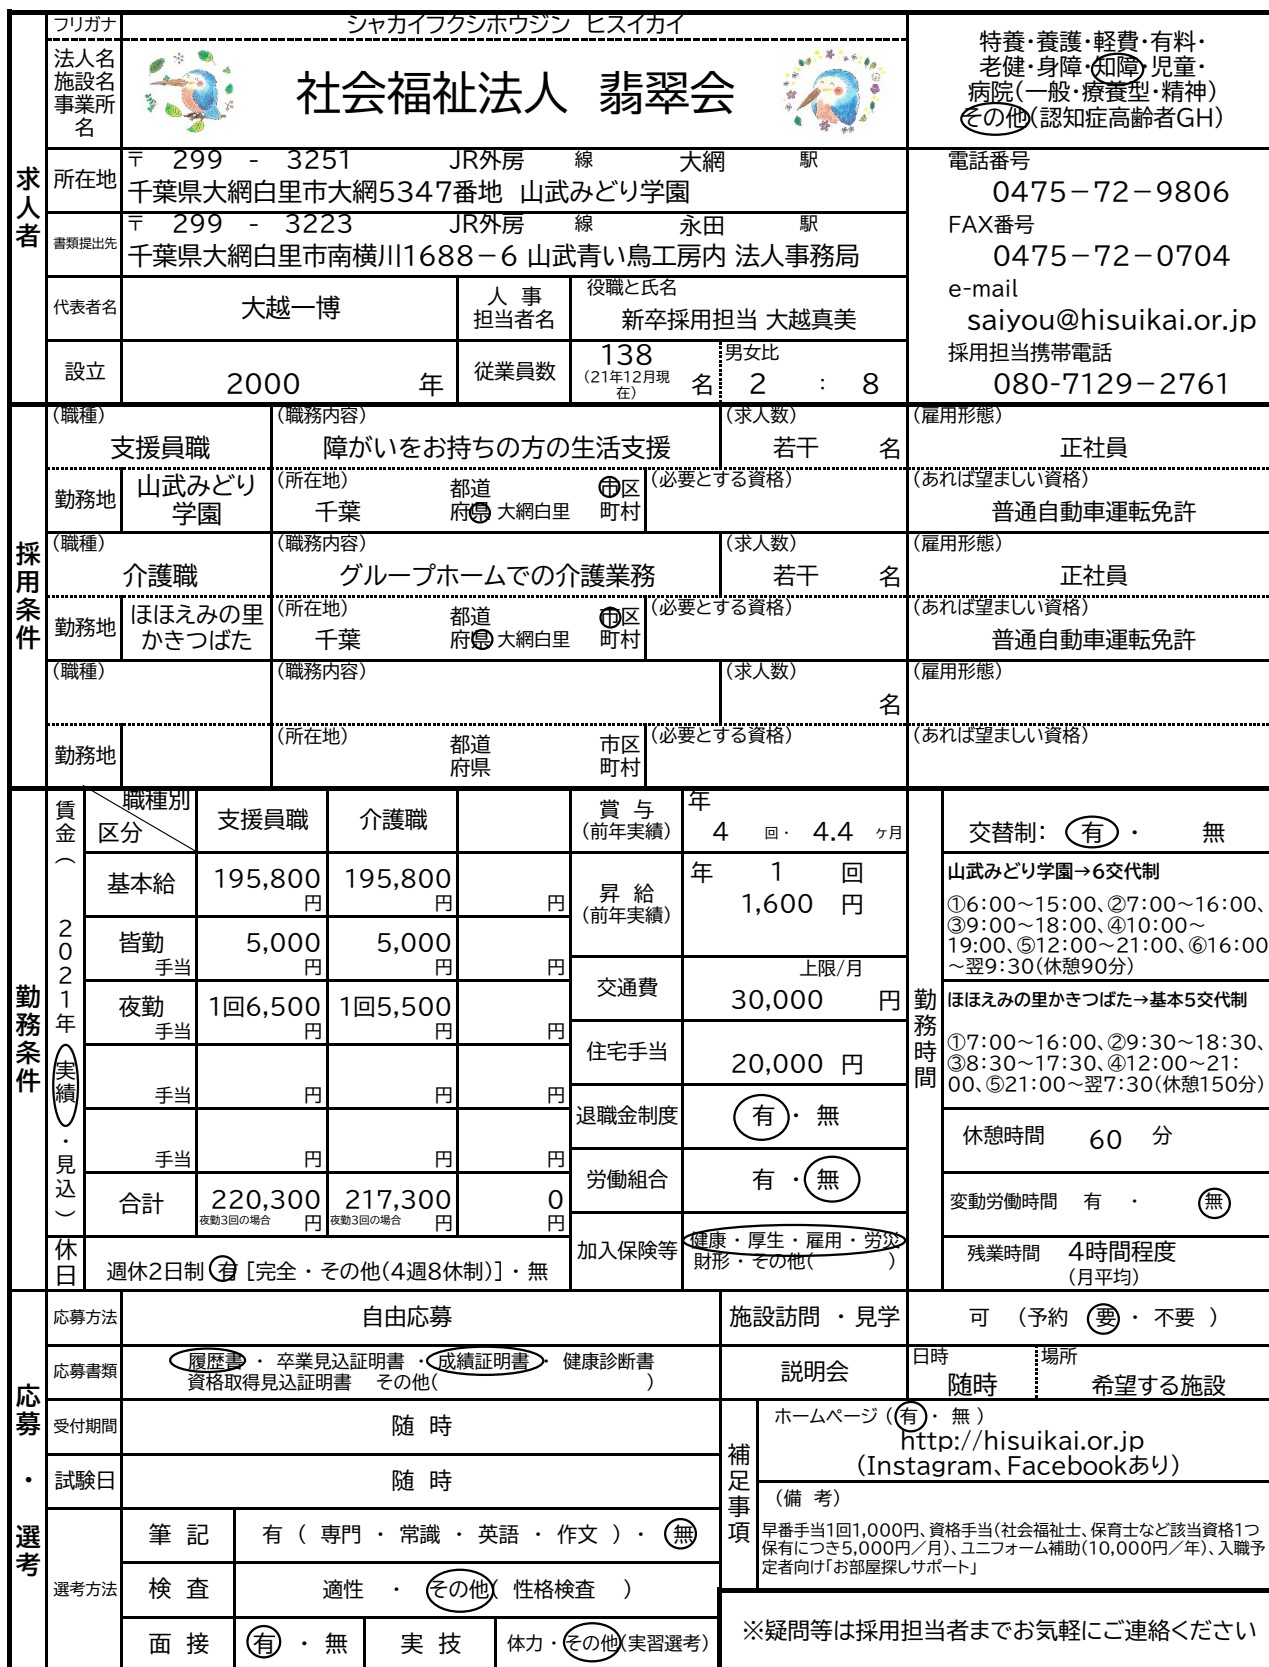 求人者
フリガナ
シャカイフクシホウジン ヒスイカイ
法人名
施設名
事業所
名
社会福祉法人 翡翠会
特養・養護・軽費・有料・
老健・身障・知障・児童・
病院(一般・療養型・精神)
その他(認知症高齢者GH)
所在地
〒 299 - 3251 JR外房 線 大網 駅
千葉県大網白里市大網5347番地 山武みどり学園
書類提出先
〒 299 - 3223 JR外房 線 永田 駅
千葉県大網白里市南横川1688-6 山武青い鳥工房内 法人事務局
電話番号
0475-72-9806
FAX番号
0475-72-0704
e-mail
saiyou@hisuikai.or.jp
採用担当携帯電話
080-7129-2761
代表者名
大越一博
人 事
担当者名
役職と氏名
新卒採用担当 大越真美
設立
2000 年
従業員数
138
(21年12月現
在) 名
男女比
2 : 8
採用条件
(職種)
支援員職
(職務内容)
障がいをお持ちの方の生活支援
(求人数)
若干 名
(雇用形態)
正社員
勤務地
山武みどり
学園
(所在地) 都道 市区
千葉 府県 大網白里 町村
(必要とする資格)
(あれば望ましい資格)
普通自動車運転免許
(職種)
介護職
(職務内容)
グループホームでの介護業務
(求人数)
若干 名
(雇用形態)
正社員
勤務地
ほほえみの里
かきつばた
(所在地) 都道 市区
千葉 府県 大網白里 町村
(必要とする資格)
(あれば望ましい資格)
普通自動車運転免許
(職種)
(職務内容)
(求人数)
名
(雇用形態)
勤務地
(所在地) 都道 市区
府県 町村
(必要とする資格)
(あれば望ましい資格)
勤務条件
賃金(2021年 実績・見込)
職種別
区分
支援員職 介護職
基本給 195,800 195,800
円 円 円
皆勤 5,000 5,000
手当 円 円 円
夜勤 1回6,500 1回5,500
手当 円 円 円
手当 円 円 円
手当 円 円 円
合計 220,300 217,300 0
夜勤3回の場合 円 夜勤3回の場合 円 円
休日
週休2日制 有 [完全・その他(4週8休制)]・無
賞 与
(前年実績)
年
4 回・ 4.4 ヶ月
昇 給
(前年実績)
年 1 回
1,600 円
交通費
上限/月
30,000 円
住宅手当
20,000 円
退職金制度
有・無
労働組合
有・無
加入保険等
健康・厚生・雇用・労災
財形・その他( )
勤務時間
交替制: 有 ・ 無
山武みどり学園→6交代制
①6:00~15:00、②7:00~16:00、
③9:00~18:00、④10:00~
19:00、⑤12:00~21:00、⑥16:00
~翌9:30(休憩90分)
ほほえみの里かきつばた→基本5交代制
①7:00~16:00、②9:30~18:30、
③8:30~17:30、④12:00~21:
00、⑤21:00~翌7:30(休憩150分)
休憩時間 60 分
変動労働時間 有 ・ 無
残業時間 4時間程度
(月平均)
応募・選考
応募方法
自由応募
施設訪問 ・見学
可 (予約 要 ・ 不要 )
応募書類
履歴書 ・ 卒業見込証明書 ・ 成績証明書 ・ 健康診断書
資格取得見込証明書 その他( )
説明会
日時
随時
場所
希望する施設
受付期間
随 時
試験日
随 時
補足事項
ホームページ (有・ 無 )
http://hisuikai.or.jp
(Instagram、Facebookあり)
(備 考)
早番手当1回1,000円、資格手当(社会福祉士、保育士など該当資格1つ
保有につき5,000円/月)、ユニフォーム補助(10,000円/年)、入職予
定者向け「お部屋探しサポート」
選考方法
筆 記
有 ( 専門 ・ 常識 ・ 英語 ・ 作文 )・ 無
検 査
適性 ・ その他( 性格検査 )
面 接
有 ・ 無
実 技
体力・その他(実習選考)
※疑問等は採用担当者までお気軽にご連絡ください